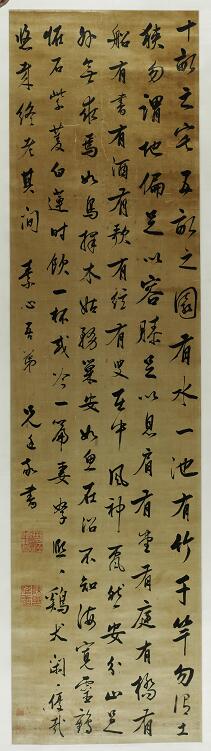 十畝之宅五畝之園有水一池有竹千竿勿謂土
狹勿謂地偏足以容膝足以息肩有堂有庭有橋有
船有書有酒有歌有弦有叟在中風神飄然安分止足
外無求焉如鳥擇木姑務巢安如魚在沼不知海寬靈鶴
怪石紫菱白蓮時飲一杯或吟一篇妻孥熙〻鷄犬閑〻優哉
游哉終老其間 素心吾弟 兄廷敬書